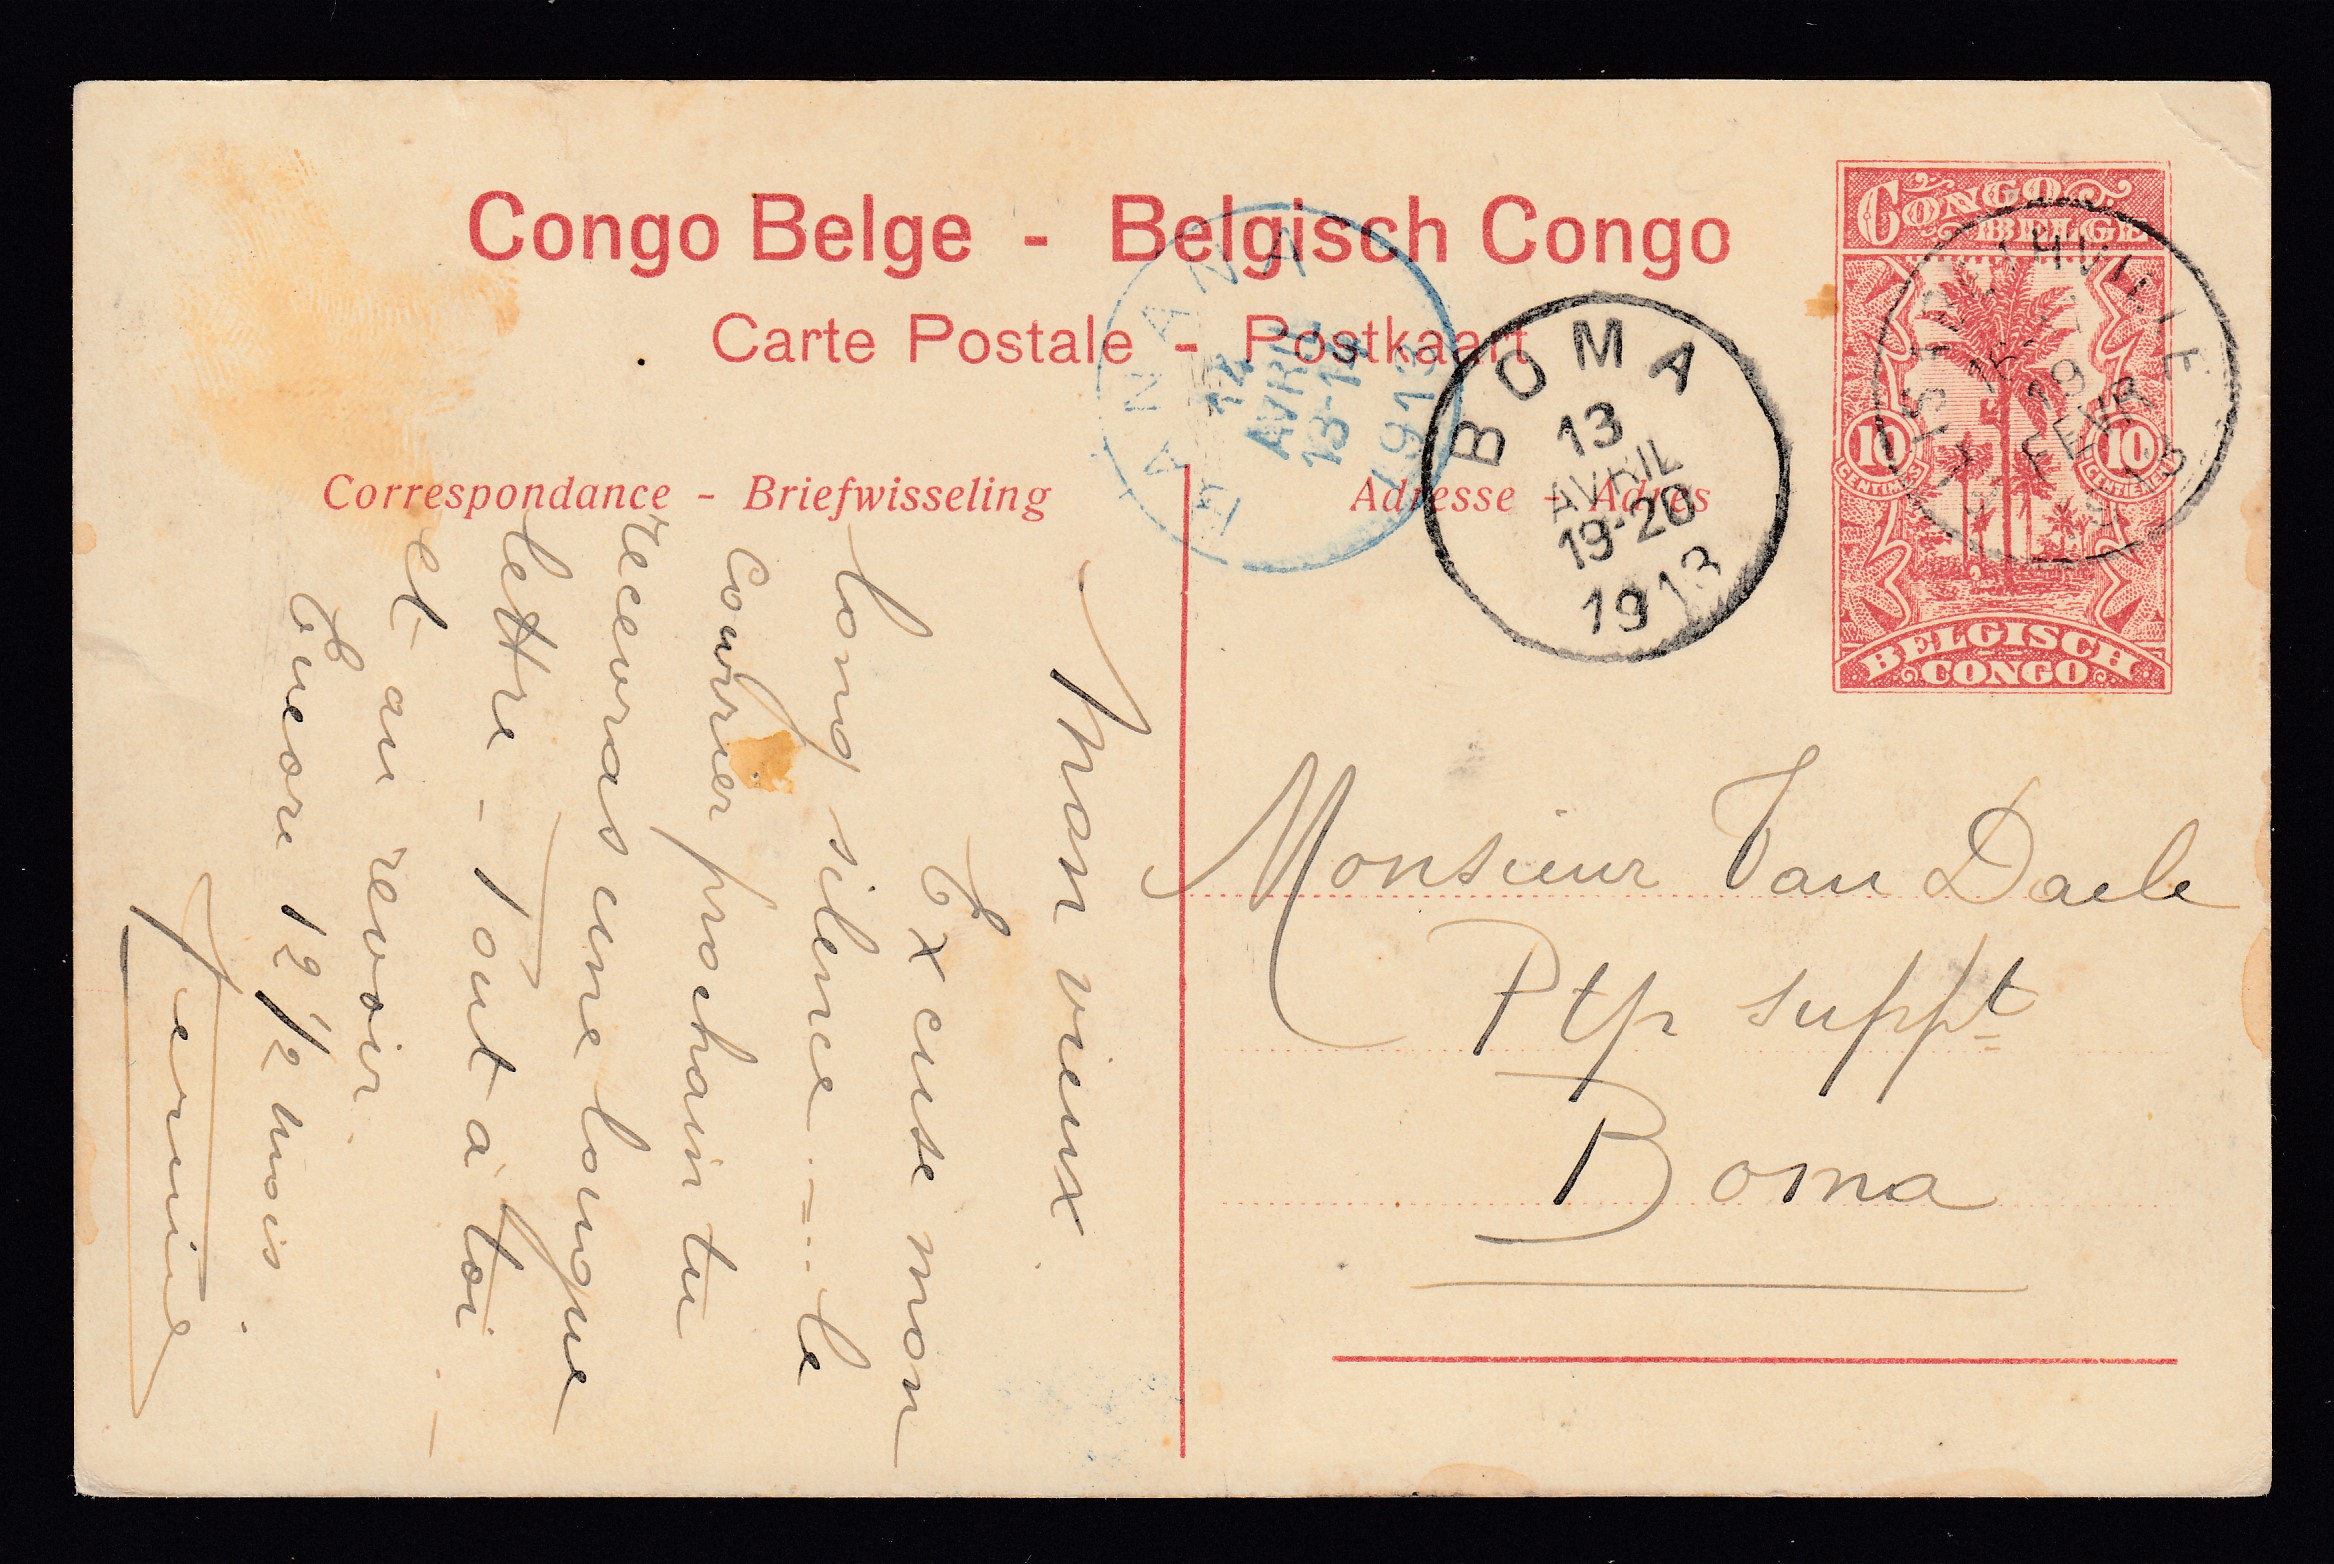 Congo Belge - Belgisch Congo
Carte Postale - Postkaart
Correspondance - Briefwisseling
Adresse - Adres
CONGO
BELGE
10
CENTIMES
10
CENTIEMEN
BELGISCH
CONGO
19
FEVR
BANANA
14
AVRIL
13-14
1913
BOMA
13
AVRIL
19-20
1913
Mon vieux
Excuse mon
long silence --- le
Courrier prochain tu
recevras une longue
lettre - Tout à toi
et au revoir.
Encore 12 1/2 mois.
Monsieur Van Daele
suppt
Boma